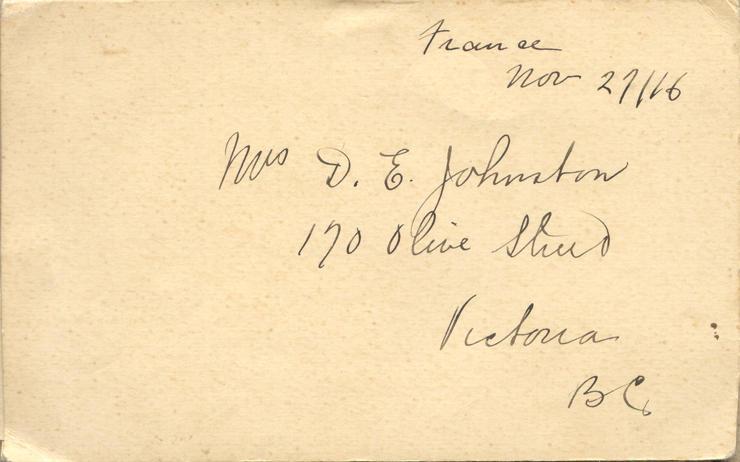 France
Nov 27/16
Mrs D. E. Johnston
170 Olive Street
Victoria
BC